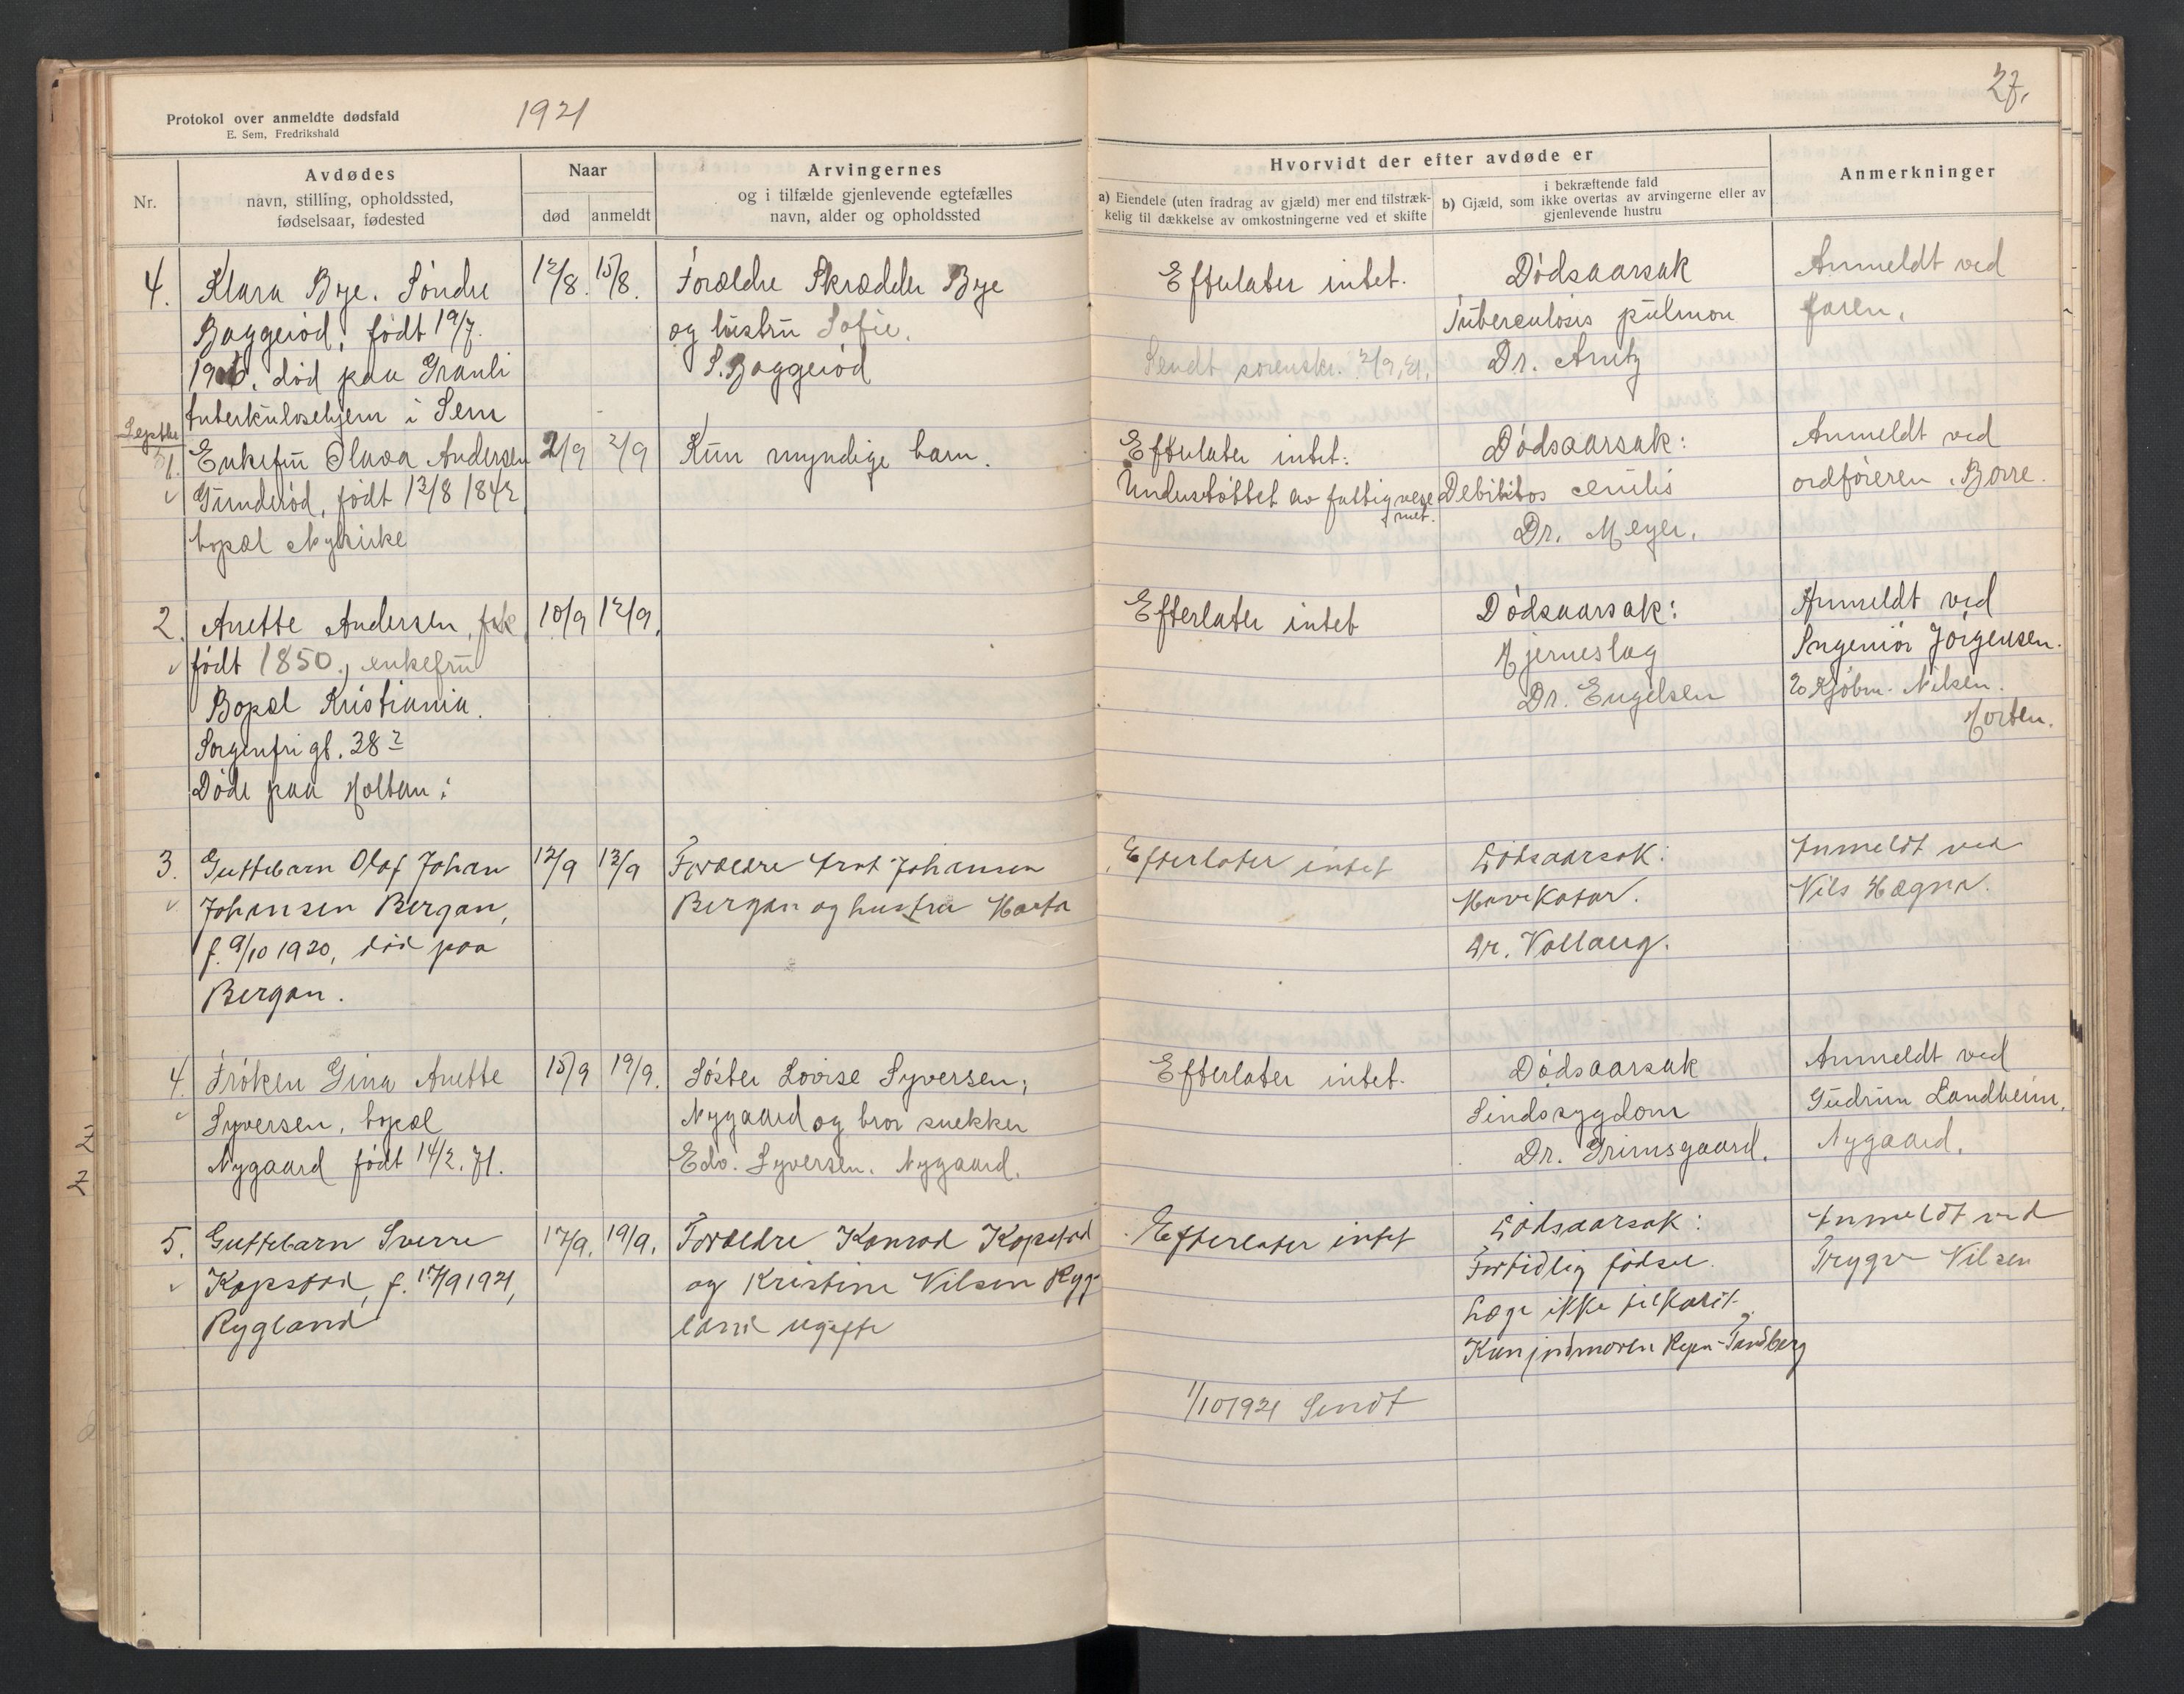 Protokol over anmeldte dødsfald
E. Sem, Fredrikshald
1921
27.
Nr.
Avdødes
navn, stilling, opholdssted,
fødselsaar, fødested
Naar
død
anmeldt
Arvingernes
og i tilfælde gjenlevende egtefælles
navn, alder og opholdssted
Hvorvidt der efter avdøde er
a) Eiendele (uten fradrag av gjæld) mer end tilstræk-
kelig til dækkelse av omkostningerne ved et skifte
i bekræftende fald
b) Gjæld, som ikke overtas av arvingerne eller av
gjenlevende hustru
Anmerkninger
4.
Klara Bye. Søndre
Baggerød, født 19/7.
død paa Granli
tuberkulosehjem i Sem
12/8.
15/8.
Forældre Skrædder Bye
og hustru Sofie.
S. Baggerød
Efterlater intet.
Sendt sorenskr. 2/9.21.
Dødsaarsak
Tuberculosis pulmon
Dr. Arntz
Anmeldt ved
faren.
Septbr
1.
Enkefru Olava Andersen
Gunderød, født 13/8 1842
bopæl Nykirke
2/9
2/9
Kun myndige barn.
Efterlater intet.
Understøttet av fattigvese
net.
Dødsaarsak:
Debilitos senilis
Dr. Meyer.
Anmeldt ved
ordføreren i Borre.
2.
Anette Andersen,
født 1850., enkefru
Bopæl Kristiania.
Sorgenfri gt. 38 2
Døde paa Holtan:
10/9
12/9.
Efterlater intet
Dødsaarsak:
Hjerneslag
Dr. Engelsen
Anmeldt ved
Ingeniør Jørgensen.
Kjøbm. Nilsen.
Horten.
3.
Guttebarn Olaf Johan
Johansen Bergan,
f. 9/10 1920, død paa
Bergan.
12/9
13/9
Forældre Johansen
Bergan og hustru Marta
Efterlater intet
Dødsaarsak:
Mavekatar.
Dr. Vollaug.
Anmeldt ved
Nils Hægna.
4.
Frøken Gina Anette
Syversen, bopæl
Nygaard født 14/2. 71.
15/9
19/9.
Søster Lovise Syversen,
Nygaard og bror snekker
Edv. Syversen. Nygaard.
Efterlater intet.
Dødsaarsak
Sindssygdom
Dr. Grimsgaard.
Anmeldt ved
Gudrun Landheim,
Nygaard.
5.
Guttebarn Sverre
Kopstad, f. 17/9 1921,
Rygland
17/9.
19/9.
Forældre Konrad Kopstad
og Kristine Nilsen Ryg-
land ugifte
Efterlater intet
Dødsaarsak:
Fortidlig fødsel.
Læge ikke tilkaldt.
Kun jordmoren Tandberg
Anmeldt ved
Trygve Nilsen
1/10 1921 Sendt